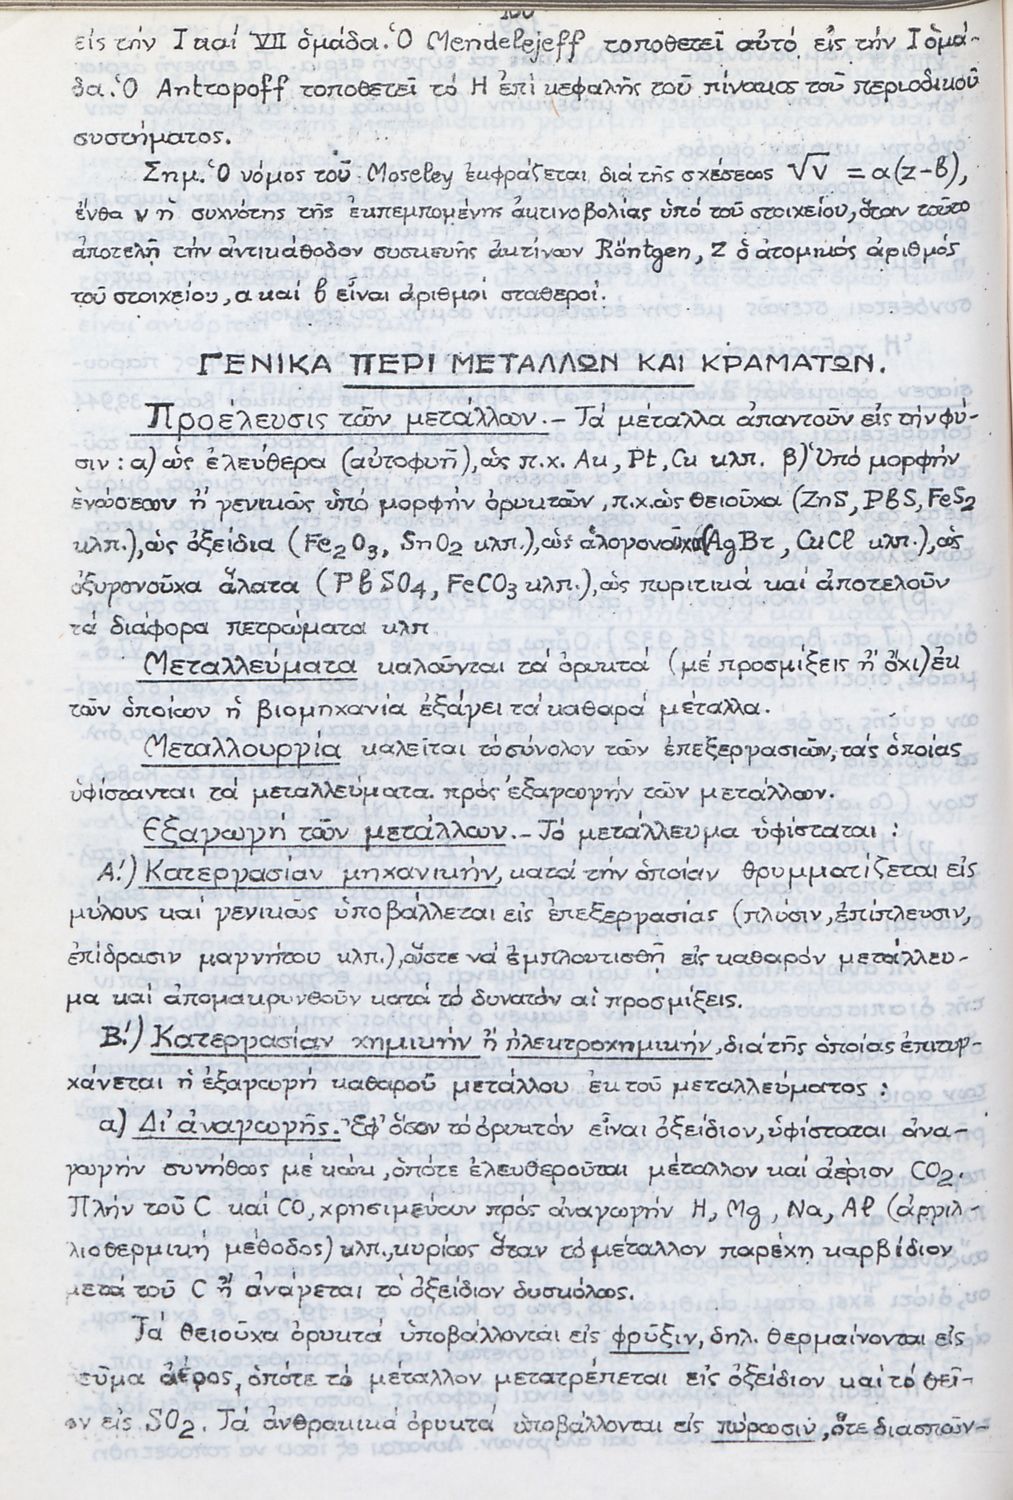 εἰς τήν I καί VII ὁμάδα. Ὁ Mendelejeff τοποθετεῖ αὐτό εἰς τήν I ὁμά-
δα. Ὁ Antropoff τοποθετεῖ τό H ἐπί κεφαλῆς τοῦ πίνακος τοῦ περιοδικοῦ
συστήματος.
Σημ. Ὁ νόμος τοῦ Moseley ἐκφράζεται διά τῆς σχέσεως √ν = α(Z-β),
ἔνθα ν ἡ συχνότης τῆς ἐκπεμπομένης ἀκτινοβολίας ὑπό τοῦ στοιχείου, ὅταν τοῦτο
ἀποτελῇ τήν ἀντικάθοδον συσκευῆς ἀκτίνων Röntgen, Z ὁ ἀτομικός ἀριθμός
τοῦ στοιχείου, α καί β εἶναι ἀριθμοί σταθεροί.
ΓΕΝΙΚΑ ΠΕΡΙ ΜΕΤΑΛΛΩΝ ΚΑΙ ΚΡΑΜΑΤΩΝ.
Προέλευσις τῶν μετάλλων. - Τά μέταλλα ἀπαντοῦν εἰς τήν φύ-
σιν: α) ὡς ἐλεύθερα (αὐτοφυῆ), ὡς π.χ. Au, Pt, Cu κλπ. β) Ὑπό μορφήν
ἑνώσεων ἤ γενικῶς ὑπό μορφήν ὀρυκτῶν, π.χ. ὡς θειοῦχα (ZnS, PbS, FeS2
κλπ.), ὡς ὀξείδια (Fe2O3, SnO2 κλπ.), ὡς ἁλογονοῦχα (AgBr, CuCl κλπ.), ὡς
ὀξυγονοῦχα ἅλατα (PbSO4, FeCO3 κλπ.), ὡς πυριτικά καί ἀποτελοῦν
τά διάφορα πετρώματα κλπ
Μεταλλεύματα καλοῦνται τά ὀρυκτά (μέ προσμίξεις ἤ ὄχι) ἐκ
τῶν ὁποίων ἡ βιομηχανία ἐξάγει τά καθαρά μέταλλα.
Μεταλλουργία καλεῖται τό σύνολον τῶν ἐπεξεργασιῶν, τάς ὁποίας
ὑφίστανται τά μεταλλεύματα πρός ἐξαγωγήν τῶν μετάλλων.
Ἐξαγωγή τῶν μετάλλων. - Τό μετάλλευμα ὑφίσταται:
Α΄.) Κατεργασίαν μηχανικήν, κατά τήν ὁποίαν θρυμματίζεται εἰς
μύλους καί γενικῶς ὑποβάλλεται εἰς ἐπεξεργασίας (πλύσιν, ἐπίπλευσιν,
ἐπίδρασιν μαγνήτου κλπ.), ὥστε νά ἐμπλουτισθῇ εἰς καθαρόν μετάλλευ-
μα καί ἀπομακρυνθοῦν κατά τό δυνατόν αἱ προσμίξεις.
Β΄.) Κατεργασίαν χημικήν ἤ ἠλεκτροχημικήν, διά τῆς ὁποίας ἐπιτυγ-
χάνεται ἡ ἐξαγωγή καθαροῦ μετάλλου ἐκ τοῦ μεταλλεύματος:
α) Δι' ἀναγωγῆς. Ἐφ' ὅσον τό ὀρυκτόν εἶναι ὀξείδιον, ὑφίσταται ἀνα-
γωγήν συνήθως μέ κώκ, ὁπότε ἐλευθεροῦται μέταλλον καί ἀέριον CO2.
Πλήν τοῦ C καί CO, χρησιμεύουν πρός ἀναγωγήν H, Mg, Na, Al (ἀργιλ-
λιοθερμική μέθοδος) κλπ., κυρίως ὅταν τό μέταλλον παρέχῃ καρβίδιον
μετά τοῦ C ἤ ἀνάγεται τό ὀξείδιον δυσκόλως.
Τά θειοῦχα ὀρυκτά ὑποβάλλονται εἰς φρῦξιν, δηλ. θερμαίνονται εἰς
ρεῦμα ἀέρος, ὁπότε τό μέταλλον μετατρέπεται εἰς ὀξείδιον καί τό θεῖ-
ον εἰς SO2. Τά ἀνθρακικά ὀρυκτά ὑποβάλλονται εἰς πύρωσιν, ὅτε διασπῶν-